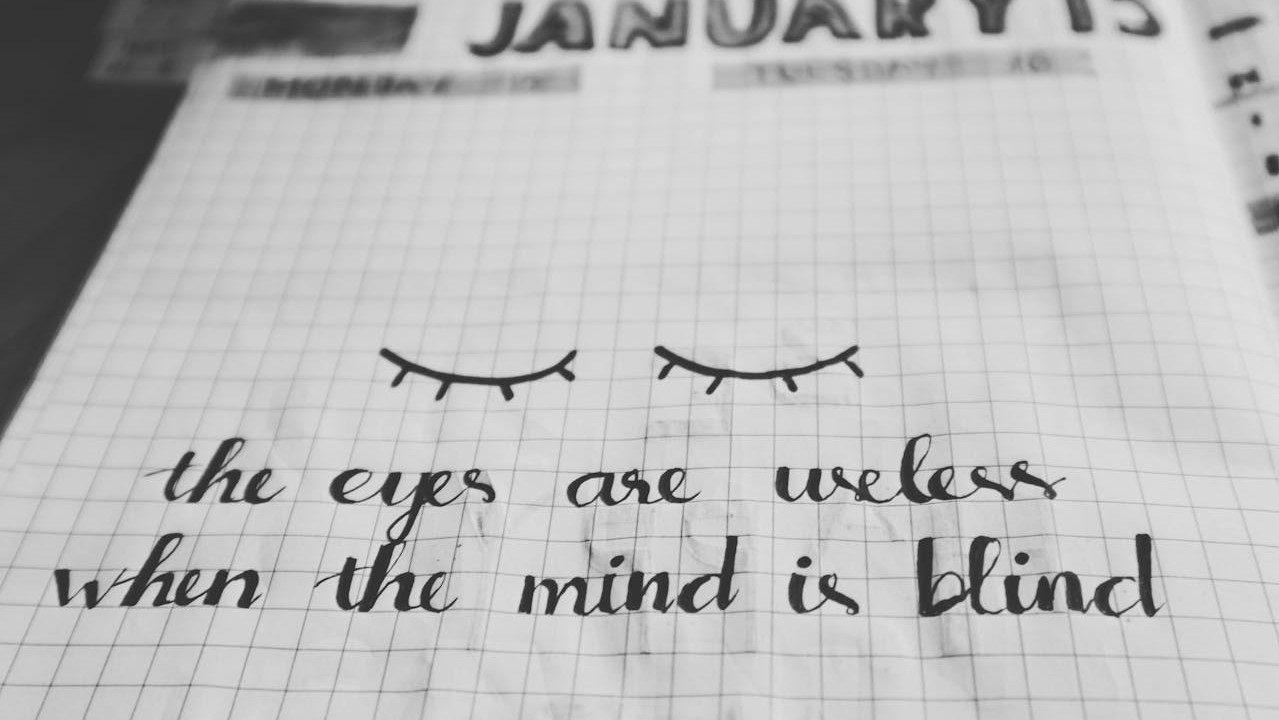 JANUARY 15
MONDAY 15 TUESDAY 16
the eyes are useless
when the mind is blind